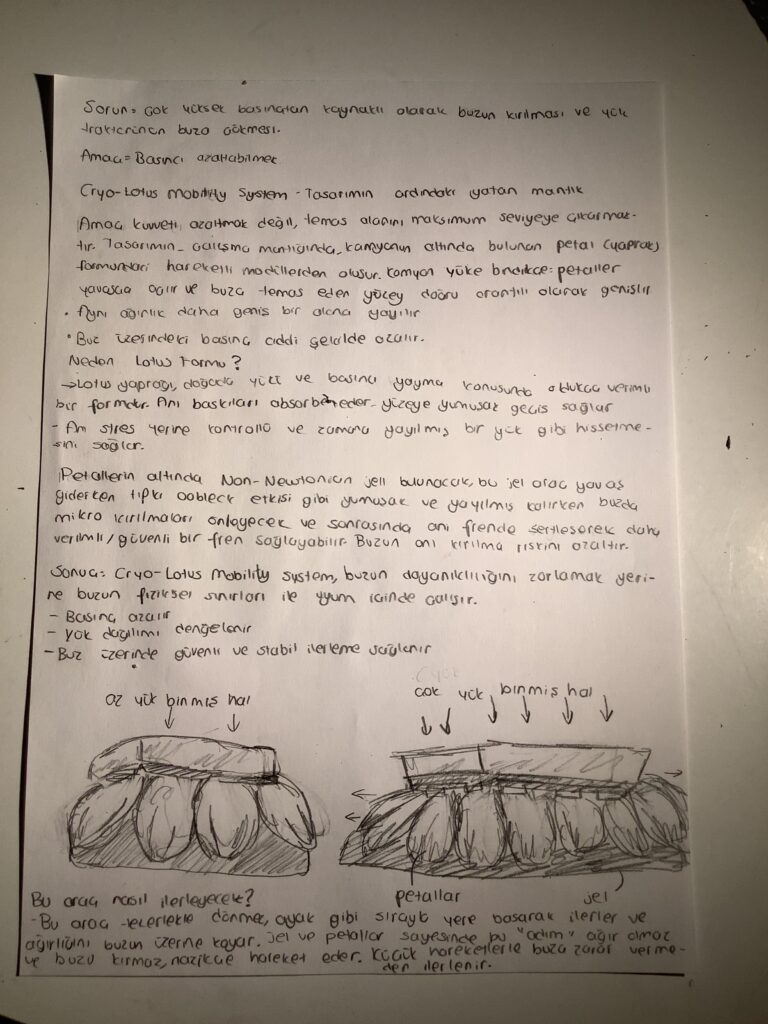 Sorun= Çok yüksek basınçtan kaynaklı olarak buzun kırılması ve yük
traktörünün buza çökmesi.
Amaç= Basıncı azaltabilmek
Cryo-Lotus Mobility System - Tasarımın ardındaki yatan mantık
Amaç kuvveti azaltmak değil, temas alanını maksimum seviyeye çıkarmak-
tır. Tasarımın çalışma mantığında, kamyonun altında bulunan petal (yaprak)
formundaki hareketli modüllerden oluşur. Kamyon yüke bindikçe petaller
yavaşça açılır ve buza temas eden yüzey doğru orantılı olarak genişlir
• Aynı ağırlık daha geniş bir alana yayılır
• Buz üzerindeki basınç ciddi şekilde azalır.
Neden Lotus Formu?
→Lotus yaprağı, doğada yükü ve basıncı yayma konusunda oldukça verimli
bir formdur. Ani baskıları absorbe eder- yüzeye yumuşak geçiş sağlar
- Ani stres yerine kontrollü ve zamana yayılmış bir yük gibi hissetme-
sini sağlar.
Petallerin altında Non-Newtonian jell bulunacak, bu jel araç yavaş
giderken tıpkı oobleck etkisi gibi yumuşak ve yayılmış kalırken buzda
mikro kırılmaları önleyecek ve sonrasında ani frende sertleşerek daha
verimli/güvenli bir fren sağlayabilir. Buzun ani kırılma riskini azaltır.
Sonuç= Cryo-Lotus Mobility System, buzun dayanıklılığını zorlamak yeri-
ne buzun fiziksel sınırları ile uyum içinde çalışır.
- Basınç azalır
- Yük dağılımı dengelenir
- Buz üzerinde güvenli ve stabil ilerleme sağlenir
az yük binmiş hal
çok yük binmiş hal
petallar
jel
Bu araç nasıl ilerleyecek?
- Bu araç tekerlekle dönmez, ayak gibi sırayla yere basarak ilerler ve
ağırlığını buzun üzerine koyar. Jel ve petallar sayesinde bu "adım" ağır olmaz
ve buzu kırmaz, nazikçe hareket eder. Küçük hareketlerle buza zarar verme-
den ilerlenir.